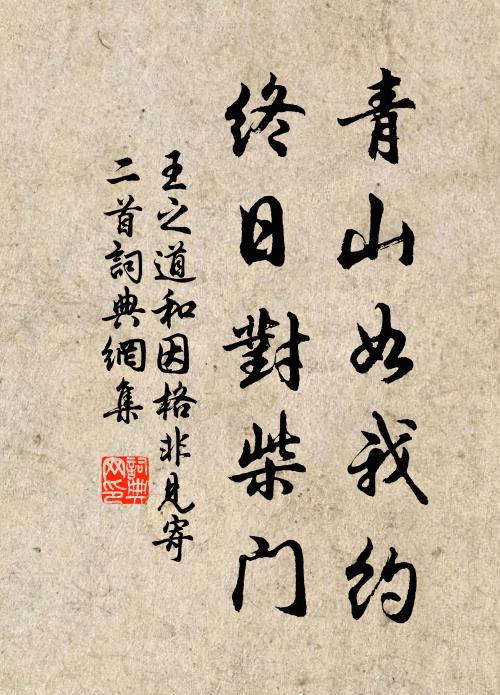 青山如我約
終日對柴门
王之道和因格非見寄
二首詞典網集
詞典
网印